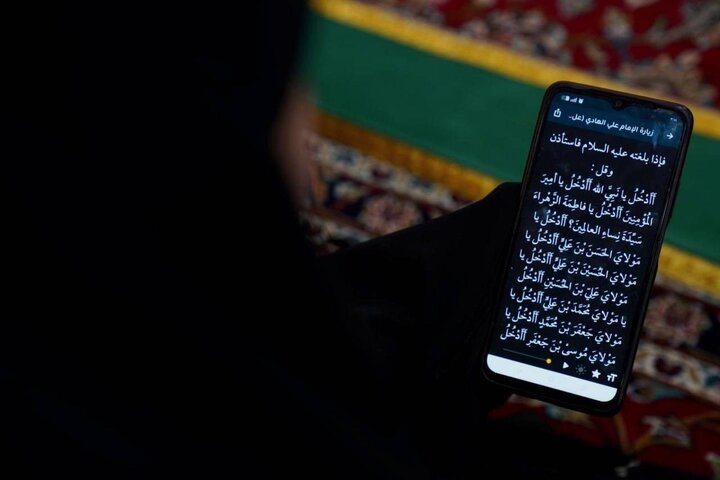 زيارة الإمام علي الهادي (عل...
فإذا بلغته عليه السلام فاستأذن
وقل :
أَأَدْخُلُ يا نَبِيَّ اللهِ أَأَدْخُلُ يا أميرَ
المُؤْمِنِينَ أَأَدْخُلُ يا فاطِمَةُ الزَّهْراءَ
سَيِّدَةَ نِساءِ العالمِينَ؟ أَأَدْخُلُ يا
مَوْلايَ الحَسَنَ بْنَ عَلِيٍّ أَأَدْخُلُ يا
مَوْلايَ الحُسَيْنَ بْنَ عَلِيٍّ أَأَدْخُلُ يا
مَوْلايَ عَلِيَّ بْنَ الحُسَيْنِ أَأَدْخُلُ
يا مَوْلايَ مُحَمَّدَ بْنَ عَلِيٍّ أَأَدْخُلُ يا
مَوْلايَ جَعْفَرَ بْنَ مُحَمَّدٍ أَأَدْخُلُ يا
مَوْلايَ مُوسىٰ بْنَ جَعْفَرٍ أَأَدْخُلُ